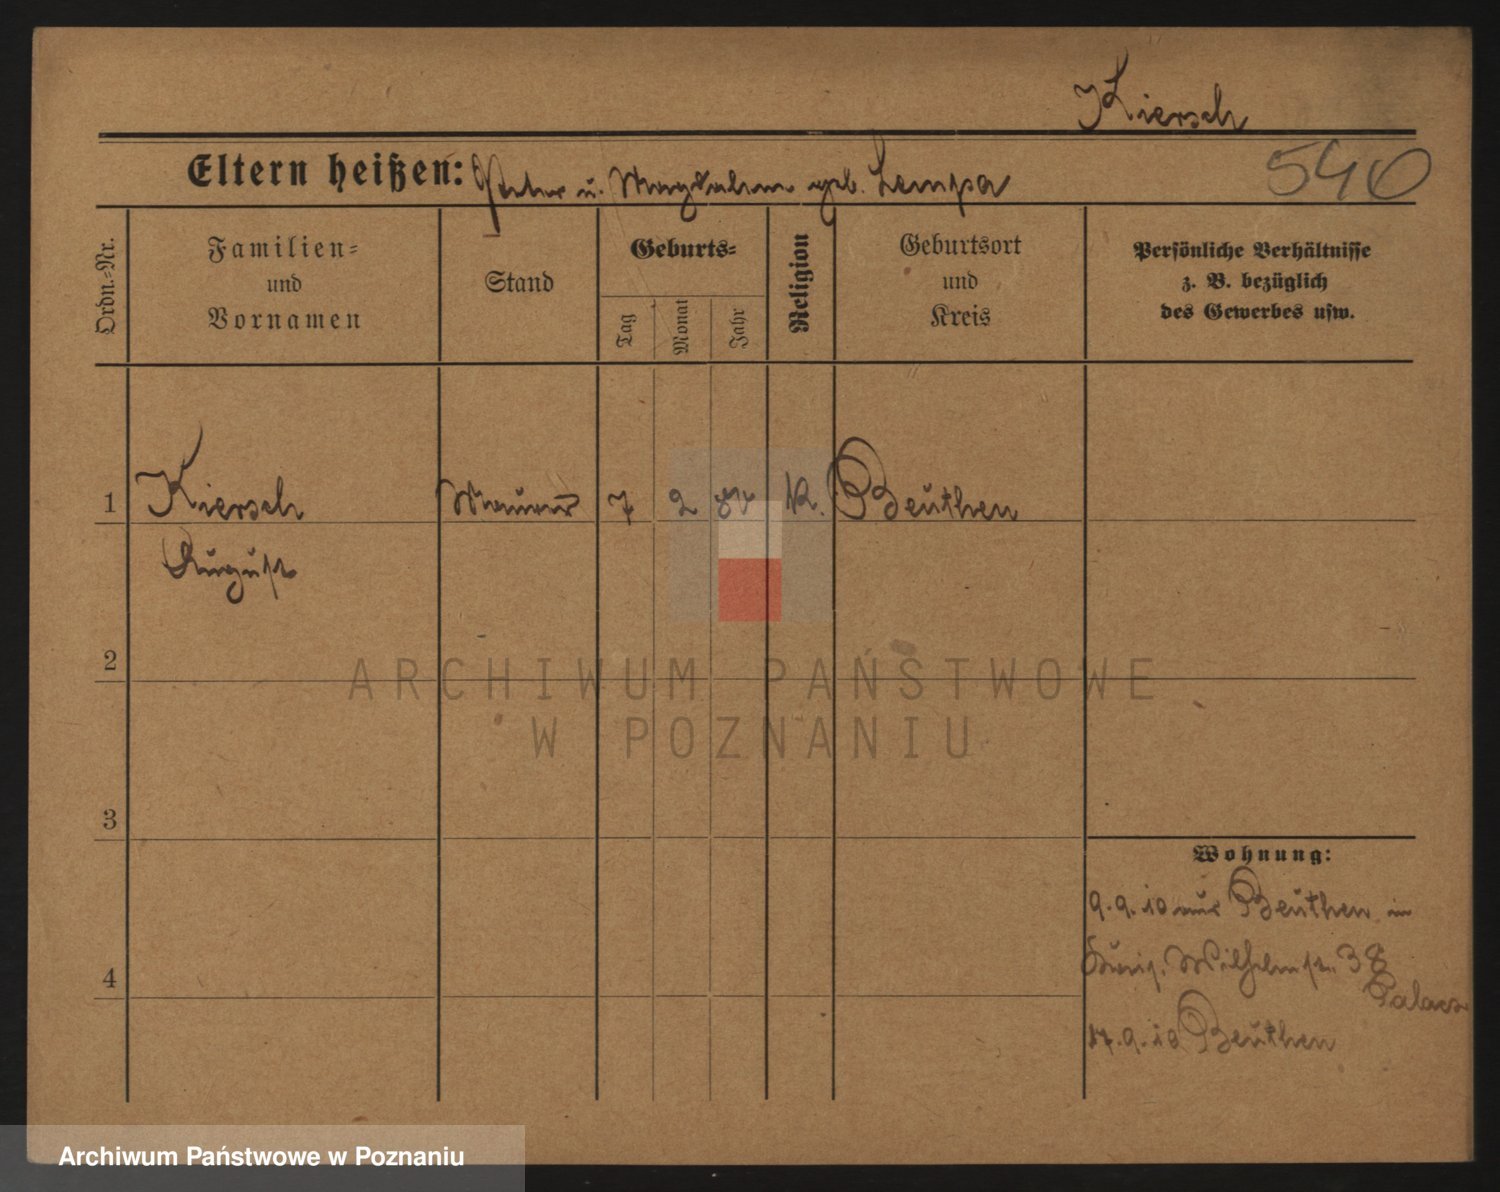 Kiersch
540
Eltern heißen: Peter u. Magdalena geb. Lempa
Ordn.-Nr.
Familien-
und
Vornamen
Stand
Geburts-
Tag
Monat
Jahr
Religion
Geburtsort
und
Kreis
Persönliche Verhältnisse
z. B. bezüglich
des Gewerbes usw.
1 Kiersch Maurer 7 2 K. Beuthen
August
2
ARCHIWUM PAŃSTWOWE
W POZNANIU
3
Wohnung:
9.9.10 aus Beuthen in
Wilhelmstr. 38
4
17.9.10 Beuthen
Archiwum Państwowe w Poznaniu